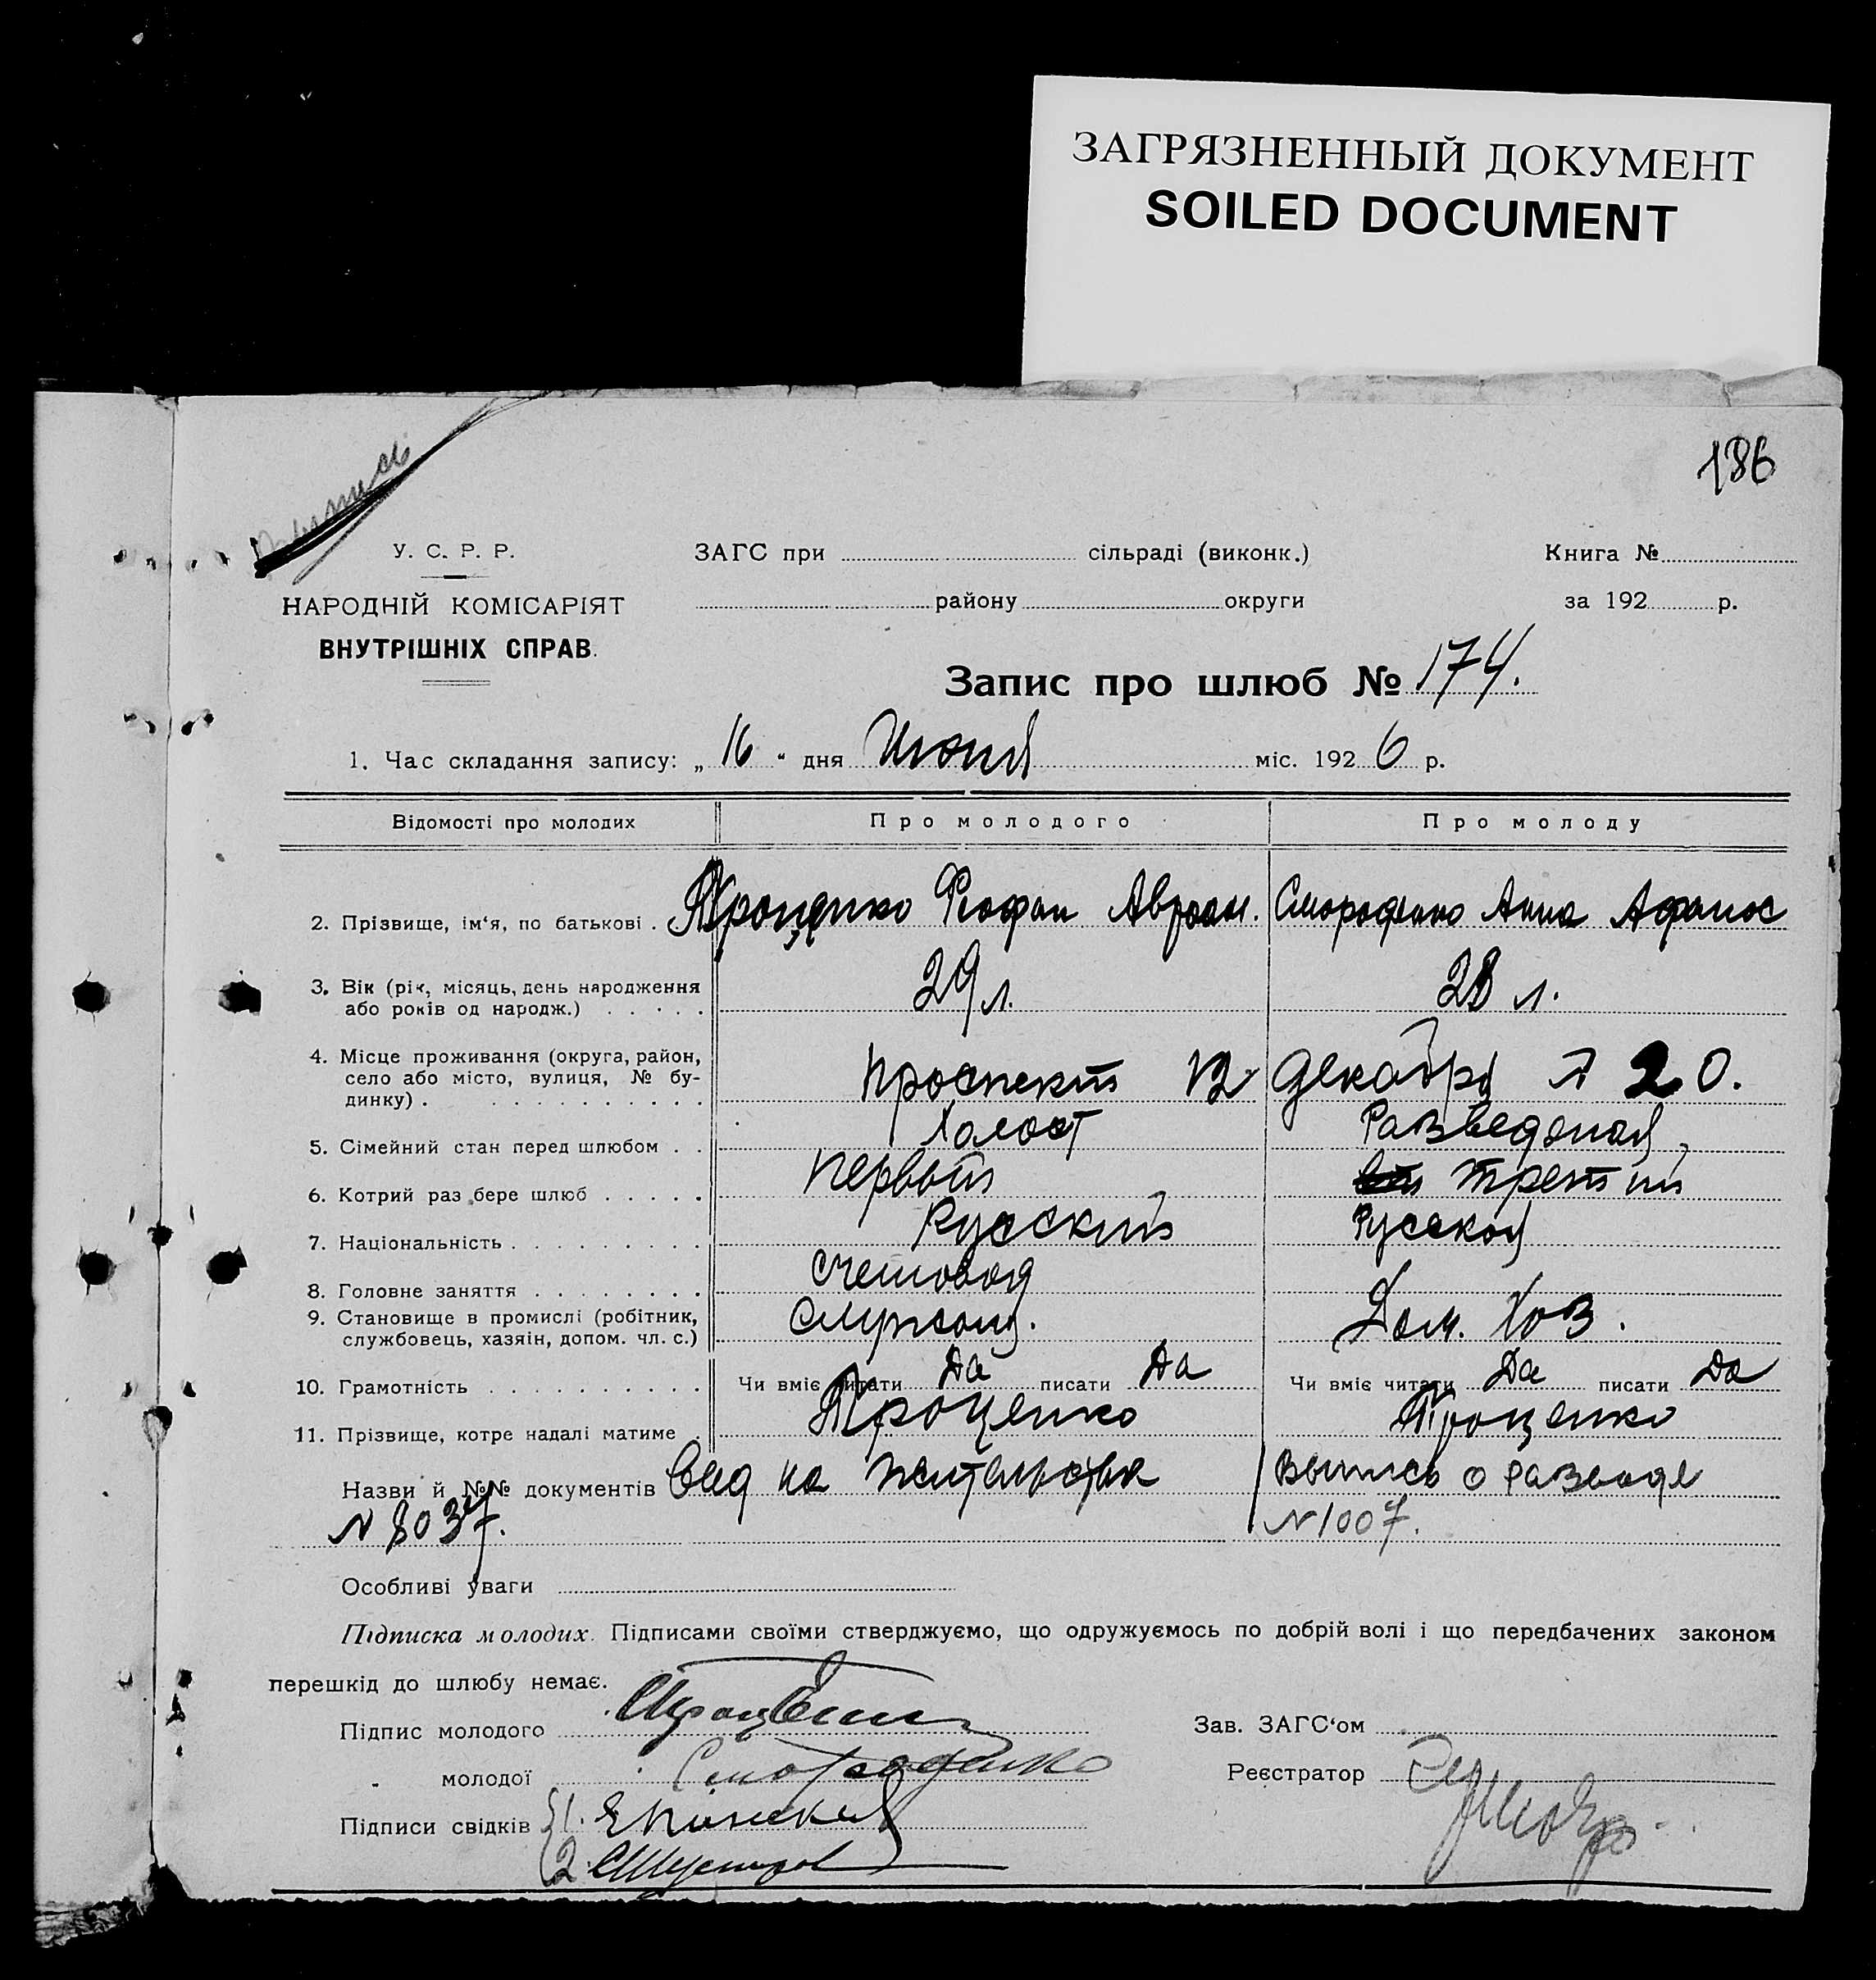 ЗАГРЯЗНЕННЫЙ ДОКУМЕНТ
SOILED DOCUMENT
186
У. С. Р. Р.
НАРОДНІЙ КОМІСАРІЯТ
ВНУТРІШНІХ СПРАВ.
ЗАГС при сільраді (виконк.)
району округи
Книга №
за 192 р.
Запис про шлюб № 174.
1. Час складання запису: „ 16 “ дня Июня міс. 192 6 р.
Відомості про молодих Про молодого Про молоду
2. Прізвище, ім‘я, по батькові . Троценко Феофан Авраам. Смороденко Анна Афанас
3. Вік (рік, місяць, день народження 29 л. 28 л.
або років од народж.)
4. Місце проживання (округа, район,
село або місто, вулиця, № бу- проспект 12 декабря 20.
динку)
5. Сімейний стан перед шлюбом . . Холост Разведеная
6. Котрий раз бере шлюб . . . . . Первый третий
7. Національність . . . . . . . . . Русский Русская
8. Головне заняття . . . . . . . . Счетовод
9. Становище в промислі (робітник,
службовець, хазяін, допом. чл. с.) Служащ. Дом. Хоз.
10. Грамотність . . . . . . . . . . Чи вміє читати Да писати Да Чи вміє читати Да писати Да
11. Прізвище, котре надалі матиме . Троценко Троценко
Назви й №№ документів Вид на жительства Выпись о разводе
N 8037. N 1007.
Особливі уваги
Підписка молодих. Підписами своїми стверджуємо, що одружуємось по добрій волі і що передбачених законом
перешкід до шлюбу немає.
Підпис молодого Троценко
Зав. ЗАГС‘ом
„ молодої Смороденко
Реєстратор
Підписи свідків 1.
2.